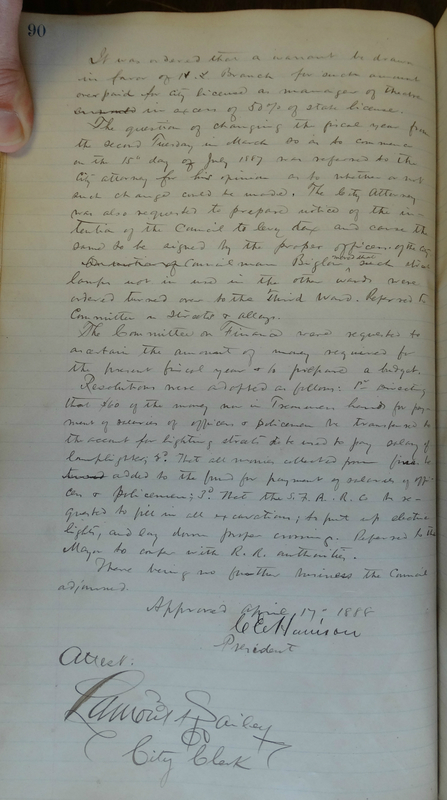 90
It was ordered that a warrant be drawn
in favor of N. L. Branch for such amount
overpaid for City license as manager of theatre
in excess of 50% of state license.
The question of changing the fiscal year from
the second Tuesday in March so as to commence
on the 15th day of July 1887 was referred to the
City attorney for his opinion as to whether or not
such change could be made. The City Attorney
was also requested to prepare notice of the in-
tention of the Council to levy tax and cause the
same to be signed by the proper officers of the city
On motion of Councilman Biglow such street
lamps not in use in the other wards were
ordered turned over to the third ward. Referred to
Committee on Streets & alleys.
The Committee on Finance were requested to
ascertain the amount of money required for
the present fiscal year & to prepare a budget.
Resolutions were adopted as follows: 1st directing
that $60 of the money now in Treasurers hands for pay-
ment of salaries of officers & policemen be transferred to
the account for lighting streets & to be used to pay salary of
lamplighter; 2d That all monies collected from fines be
added to the fund for payment of salaries of offi-
cers & policemen; 3d That the S. F. & R. Co be re-
quested to fill in all excavations, to put up electric
lights, and lay down proper crossing. Referred to the
Mayor to confer with R. R. authorities.
There being no further business the Council
adjourned.
Approved April 17 - 1888
C C Harrison
President
Attest:
Bailey
City Clerk